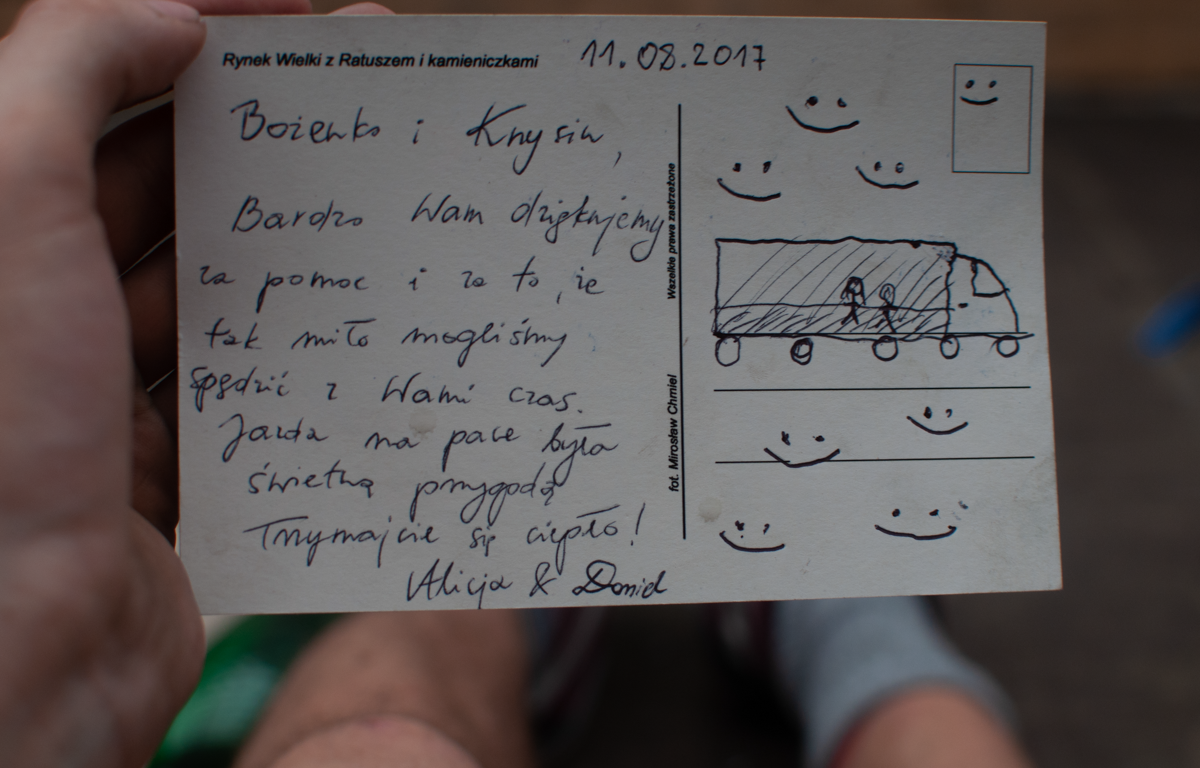 Rynek Wielki z Ratuszem i kamieniczkami
11.08.2017
Bożenko i Krzysiu,
Bardzo Wam dziękujemy
za pomoc i za to, że
tak miło mogliśmy
spędzić z Wami czas.
Jazda na pace była
świetną przygodą
Trzymajcie się ciepło!
Alicja & Daniel
Wszelkie prawa zastrzeżone
fot. Mirosław Chmiel